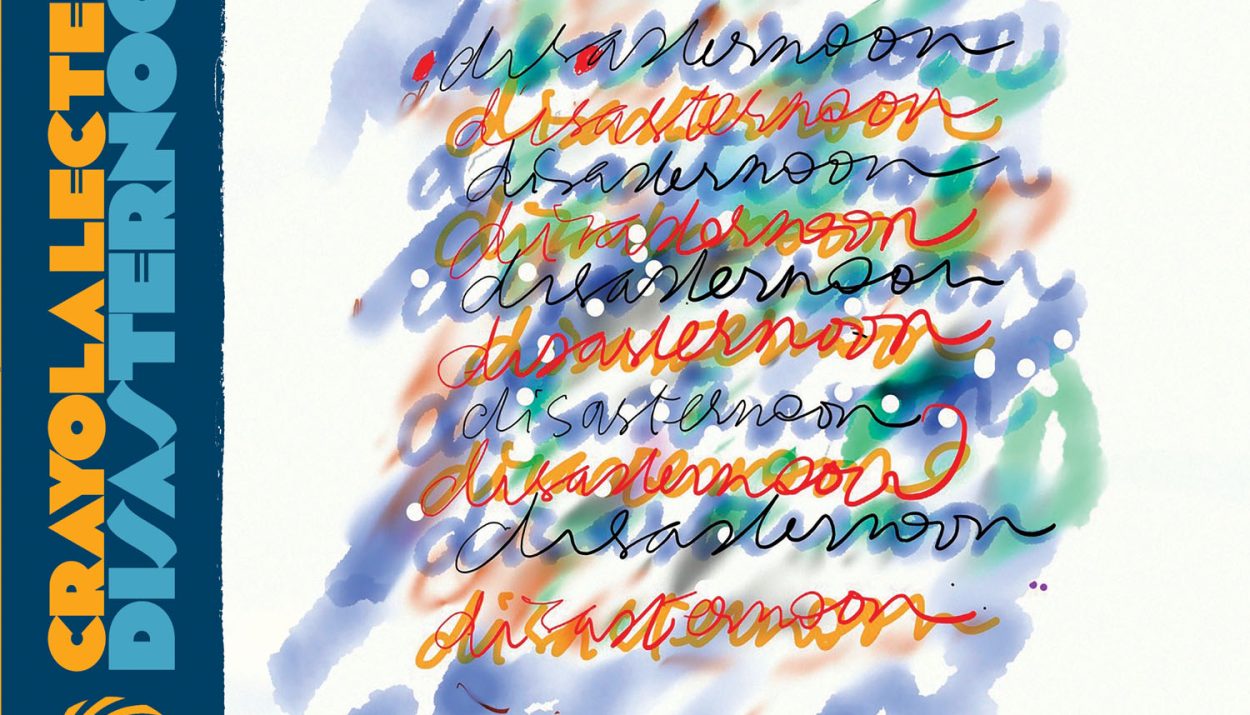 CRAYOLA LECTE
DISASTERNOO
disasternoon
disasternoon
disasternoon
disasternoon
disasternoon
disasternoon
disasternoon
disasternoon
disasternoon
disasternoon